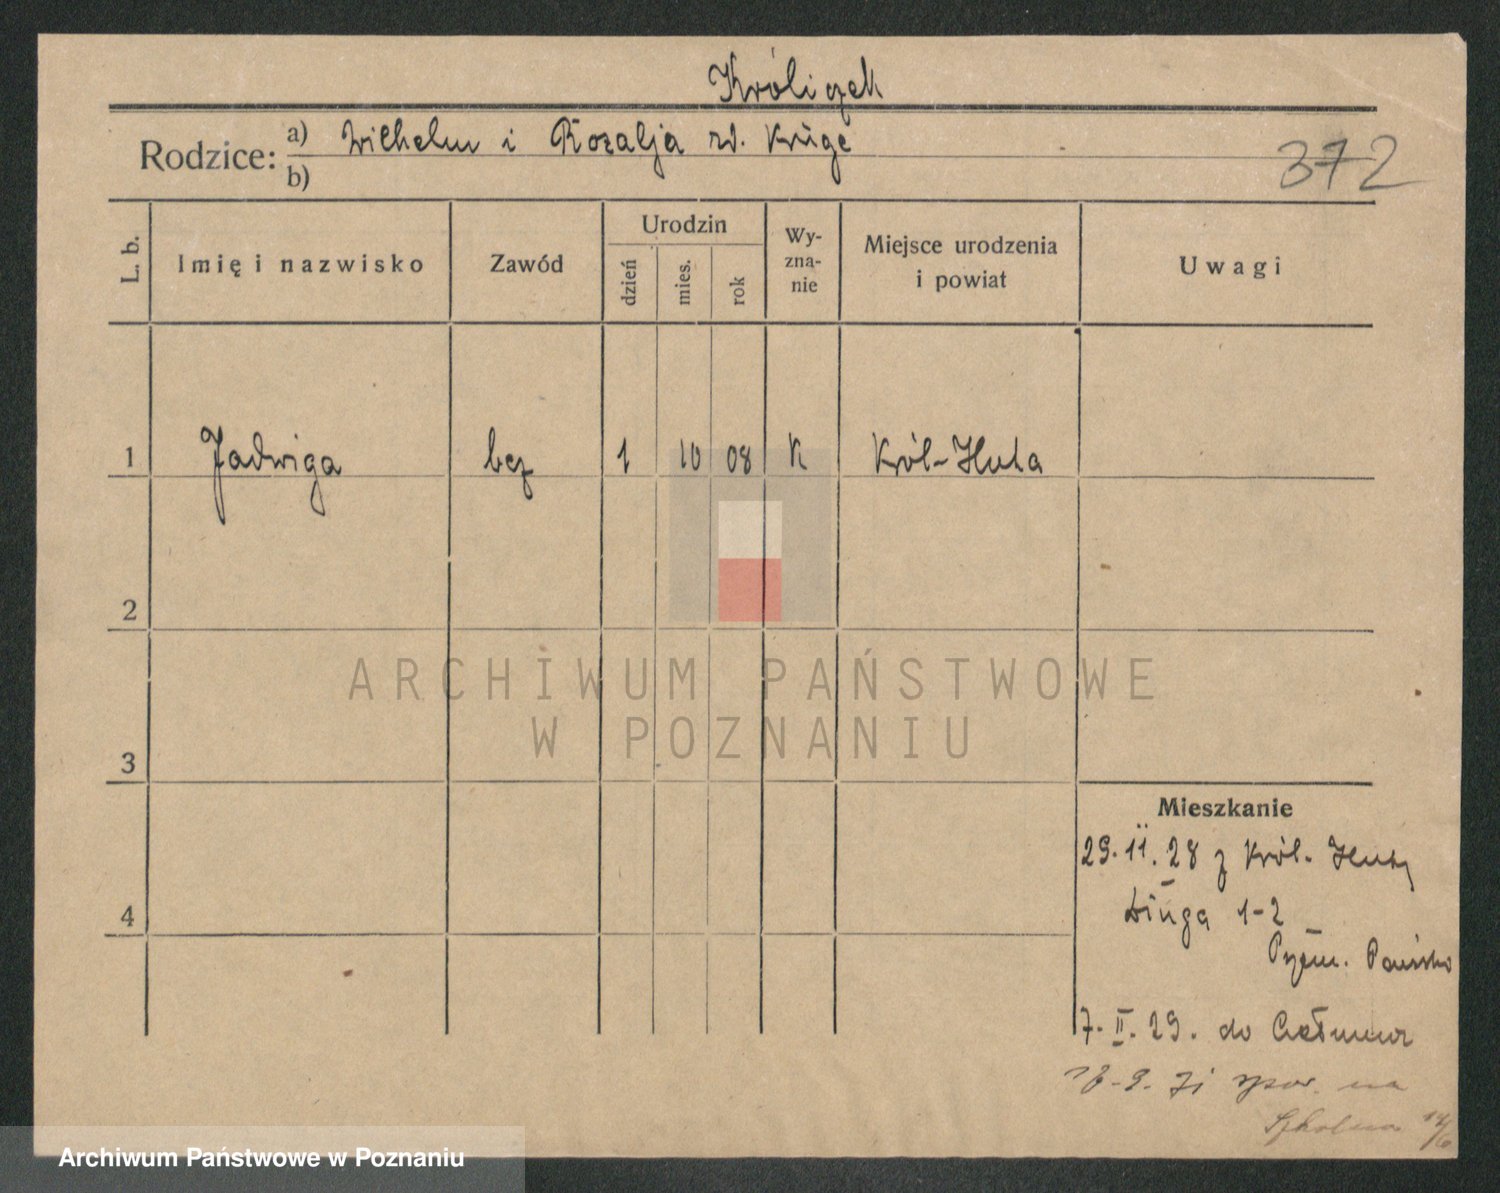 Króliczek
Rodzice: a) Wilhelm i Rozalja zd. Kruge
b)
372
L. b.
Imię i nazwisko
Zawód
Urodzin
dzień
mies.
rok
Wy-
zna-
nie
Miejsce urodzenia
i powiat
Uwagi
1 Jadwiga bez 1 10 08 K Król-Huta
2
3
4
Mieszkanie
29.11.28 z Król. Huty
Długa 1-2
7.II.29. do Chełmna
na
Szkolna
ARCHIWUM PAŃSTWOWE
W POZNANIU
Archiwum Państwowe w Poznaniu